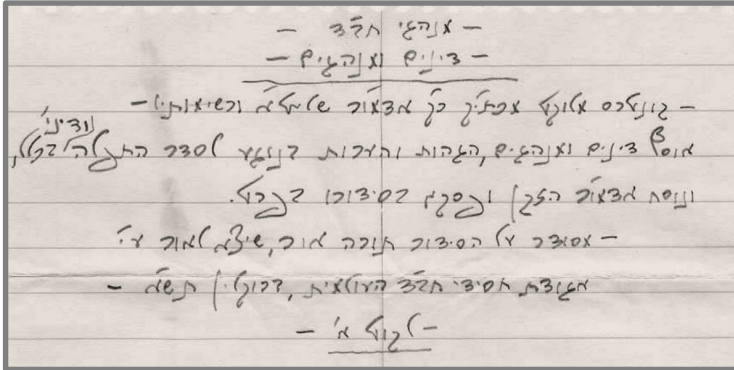 – מנהגי חב"ד –
– דינים ומנהגים –
– קונטרס מלוקט מכת"ק כ"ק אדמו"ר שליט"א ורשימותיו –
ודיני'
אוסף דינים ומנהגים, הגהות והערות בנוגע לסדר התפלה בכלל,
ונוסח אדמו"ר הזקן בסידורו בפרט.
– מסודר על הסידור תורה אור, שיצא לאור ע"י
אגודת חסידי חב"ד העולמית, ברוקלין תש"א –
– לקוט א' –